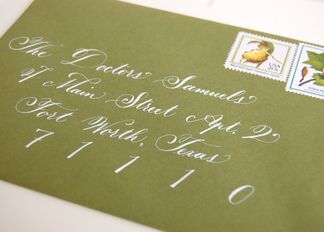 The Doctors Samuels
47 Main Street Apt. 2
Fort Worth, Texas
71110
USA